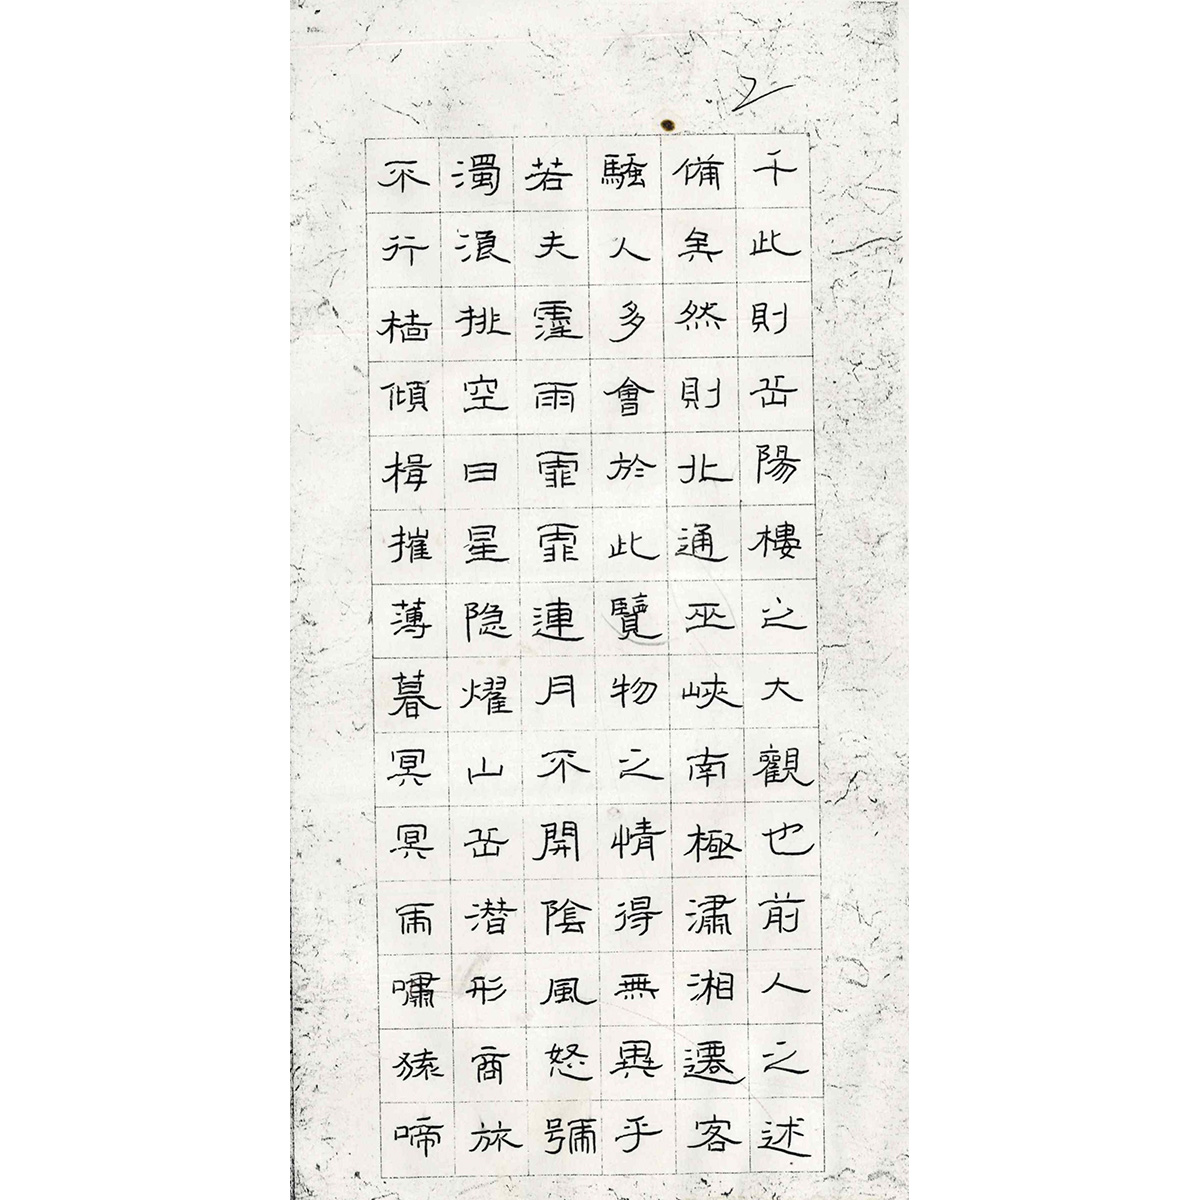 2
千此則岳陽樓之大觀也前人之述
備矣然則北通巫峽南極潚湘遷客
騷人多會於此覽物之情得無異乎
若夫霪雨霏霏連月不開陰風怒號
濁浪排空日星隐耀山岳潜形商旅
不行檣傾楫摧薄暮冥冥虎嘯猿啼